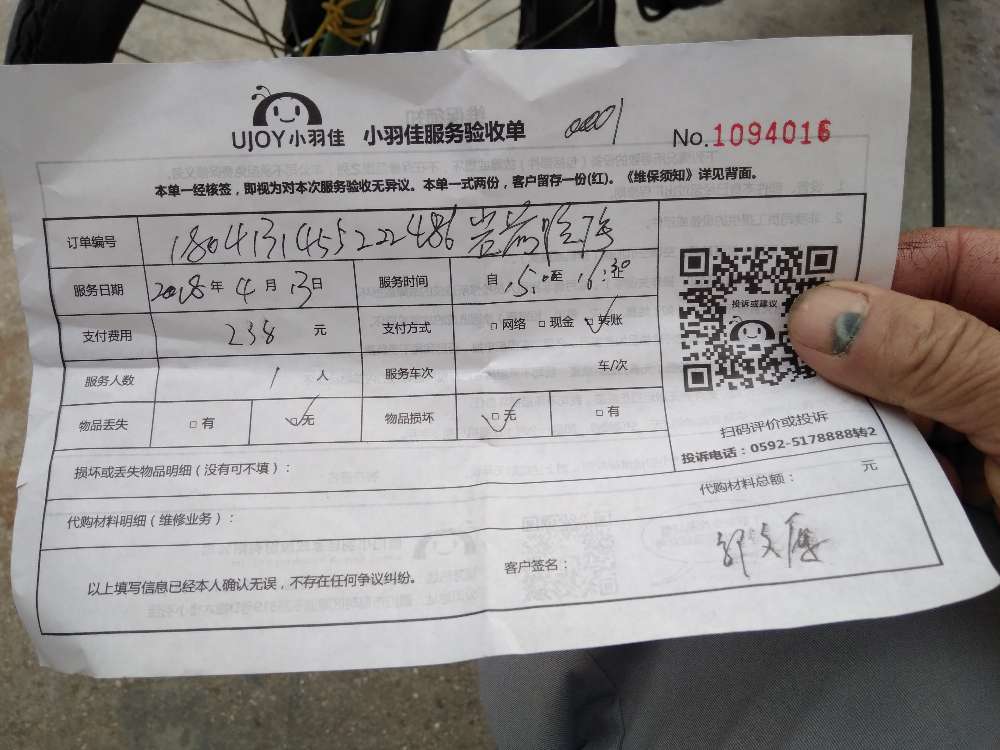 UJOY小羽佳 小羽佳服务验收单 0001 No.1094016
本单一经核签，即视为对本次服务验收无异议。本单一式两份，客户留存一份(红)。《维保须知》详见背面。
订单编号 180413145522486
服务日期 2018年4月13日 服务时间 自15:00至16:30止
支付费用 238元 支付方式 □网络 □现金 □转账
服务人数 1人 服务车次 车/次
物品丢失 □有 □无 物品损坏 □无 □有
投诉或建议
扫码评价或投诉
投诉电话：0592-5178888转2
损坏或丢失物品明细（没有可不填）：
代购材料明细（维修业务）： 代购材料总额： 元
以上填写信息已经本人确认无误，不存在任何争议纠纷。 客户签名：